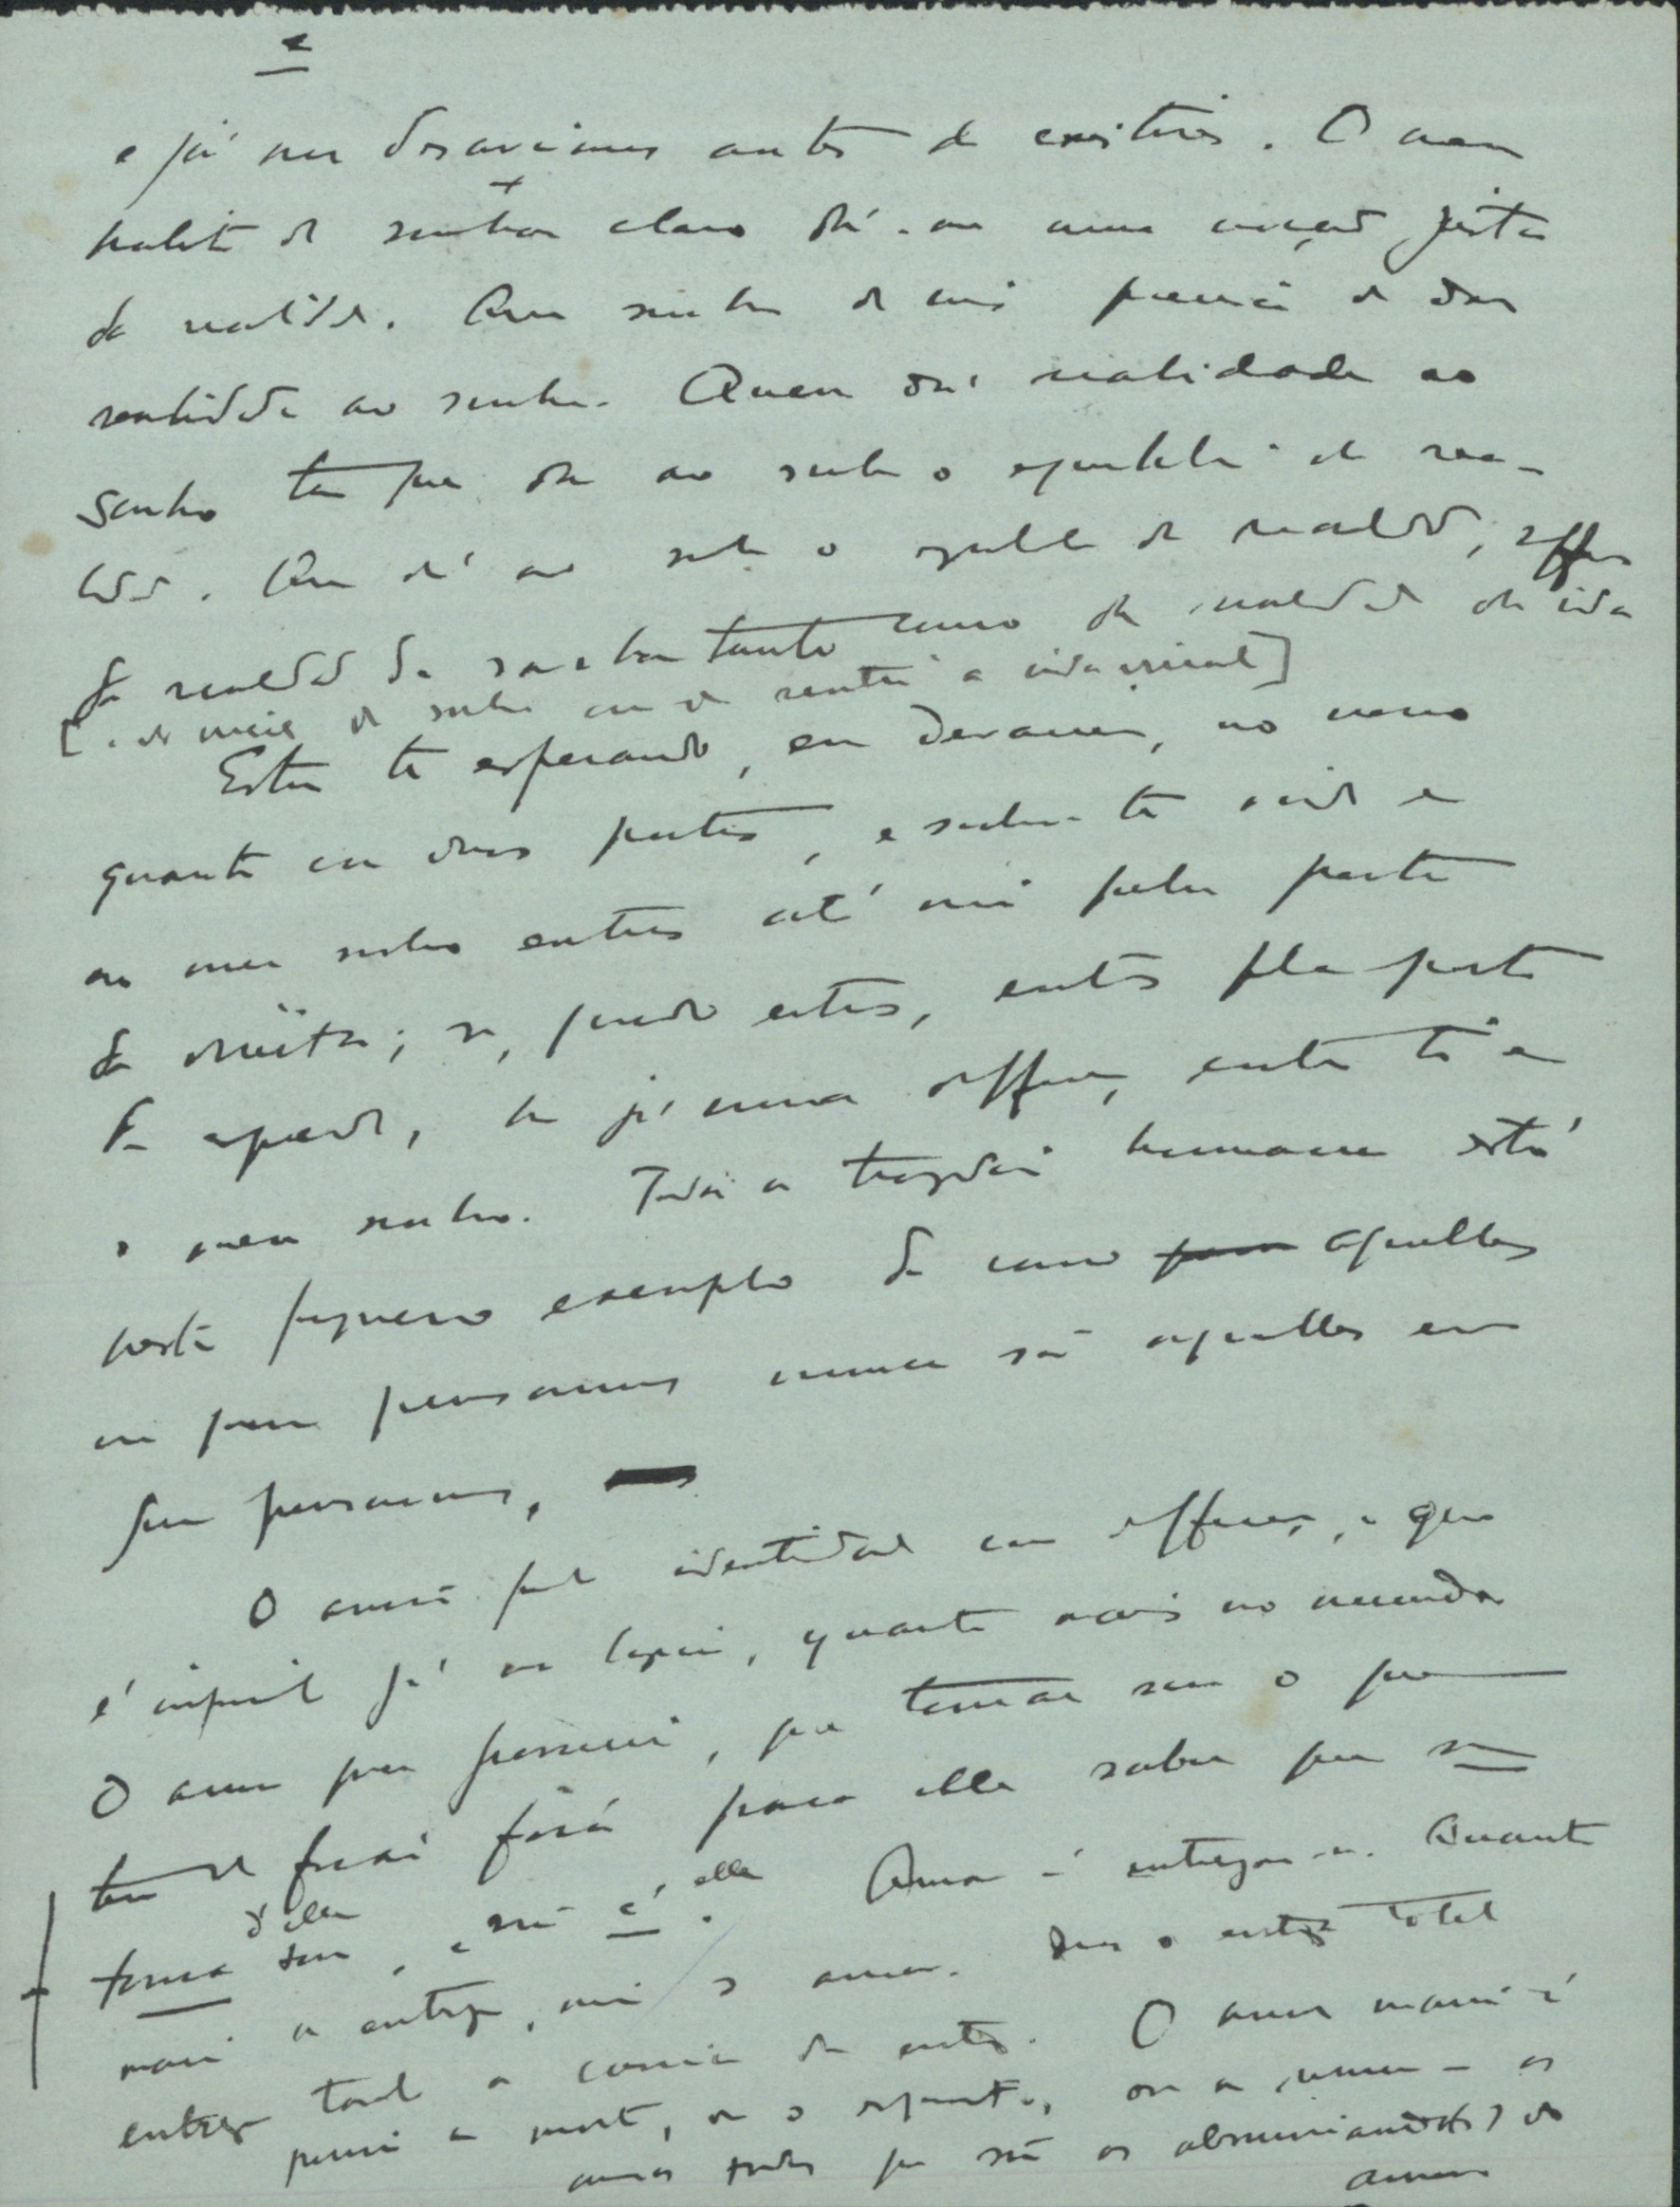 2
e já nos desaviamos antes de existires. O meu
habito de sonhar claro dá-me uma noção justa
da realidade. Quem sonha de mais precisa de dar
realidade ao sonho. Quem dá realidade ao
sonho tem que dar ao sonho o equilibrio da rea-
lidade. Quem dá ao sonho o equilibrio da realidade, soffre
da realidade de sonhar tanto como da realidade da vida
[e do irreal do sonho como de sentir a vida irreal]
Estou te esperando, em devaneio, no nosso
quarto com duas portas, e sonho-te vindo e
no meu sonho entras até mim pela porta
da direita; se, quando entras, entras pela porta
da esquerda, ha já uma differença entre ti e
o meu sonho. Toda a tragedia humana está
neste pequeno exemplo de como aquelles
em quem pensamos nunca são aquelles em
que pensamos.
O amor pede identidade com differença, o que
é impossivel já na logica, quanto mais no mundo
O amor quer possuir, quer tornar seu o que
tem de ficar fóra para elle saber que se
torna seu d'elle, e não é elle. Amar é entregar-se. Quanto
maior a entrega, maior o amor. Mas a entrega total
entrega tambem a consciencia do outro. O amor maior é
por isso a morte, ou o esquecimento, ou a renuncia - os
amores todos que são os absurdiandos do
amor